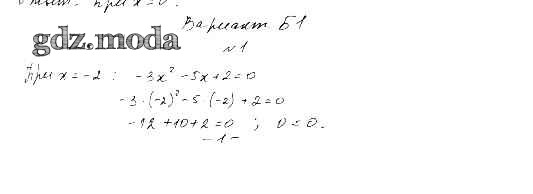 Ответ: при x = 0.
Вариант Б1
gdz.moda
№1
При x = -2 : -3x² - 5x + 2 = 0
-3 · (-2)² - 5 · (-2) + 2 = 0
-12 + 10 + 2 = 0 ; 0 = 0.
- 1 -